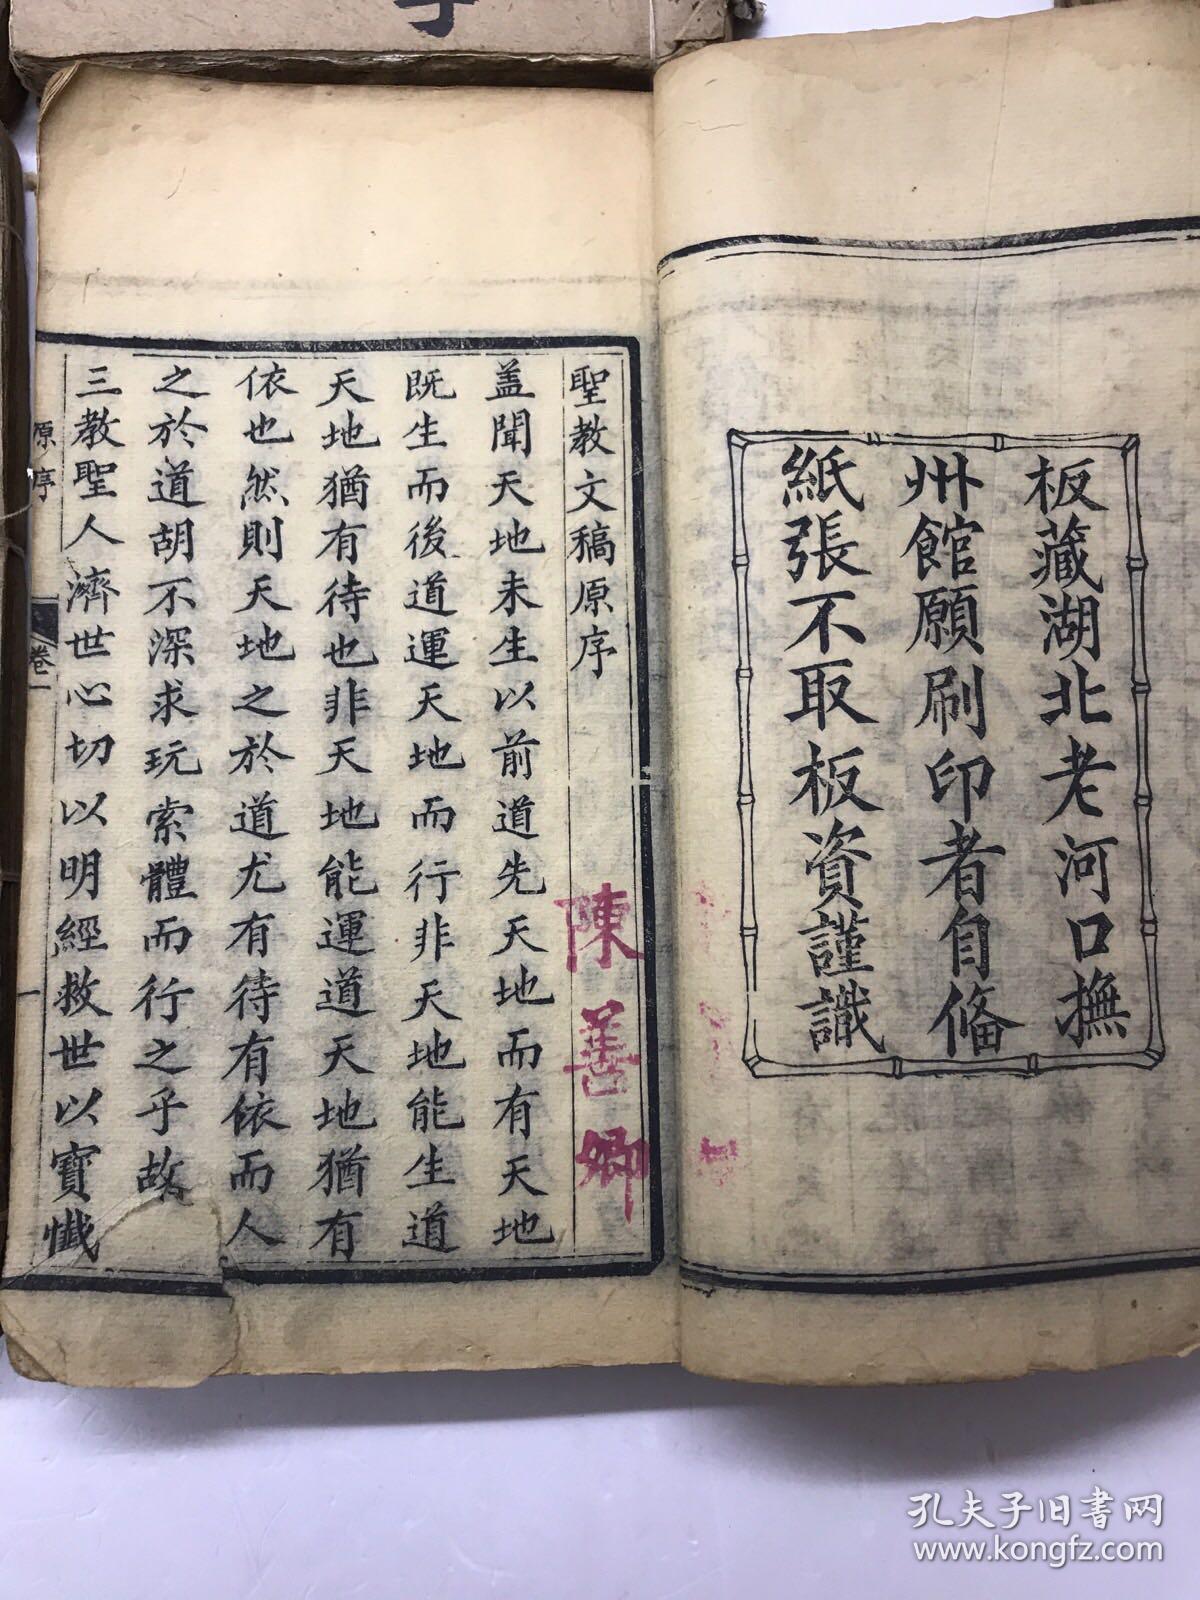 板藏湖北老河口撫
州館願刷印者自俻
紙張不取板資謹識
聖教文稿原序
陳善卿
盖聞天地未生以前道先天地而有天地
既生而後道運天地而行非天地能生道
天地猶有待也非天地能運道天地猶有
依也然則天地之於道尤有待有依而人
之於道胡不深求玩索體而行之乎故
三教聖人濟世心切以明經救世以寶懺
原序
卷一
一
孔夫子旧书网
www.kongfz.com